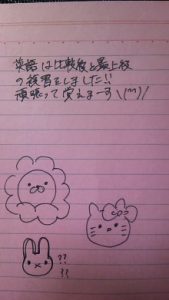 英語は比較級と最上級
の復習をしました!!
頑張って覚えまーす\(^^)/
??
??